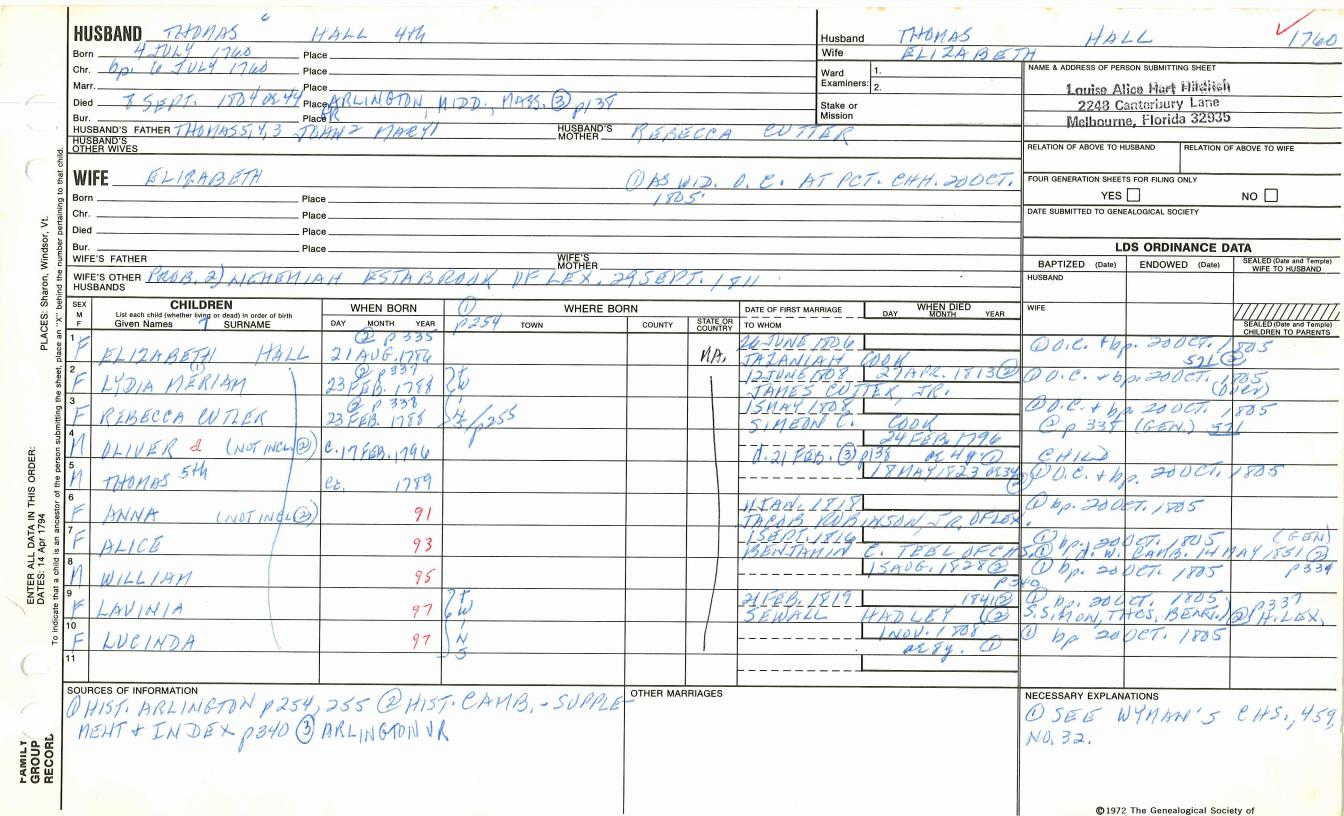 HUSBAND THOMAS 6 HALL 4th
Born 4 JULY 1760 Place
Chr. bp. 6 JULY 1760 Place
Marr. Place
Died 7 SEPT. 1804 or 44 Place ARLINGTON, MIDD., MASS. ③ p138
Bur. Place
HUSBAND'S FATHER THOMAS 5, 4, 3 JOHN 2 MARY 1 HUSBAND'S MOTHER REBECCA CUTTER
HUSBAND'S OTHER WIVES
WIFE ELIZABETH ① AS WID. O.C. AT PCT. CHH. 20 OCT.
1805
Born Place
Chr. Place
Died Place
Bur. Place
WIFE'S FATHER WIFE'S MOTHER
WIFE'S OTHER HUSBANDS PROB. 2) NEHEMIAH ESTABROOK OF LEX. 29 SEPT. 1811
Husband THOMAS HALL 1760
Wife ELIZABETH
Ward Examiners: 1.
2.
Stake or Mission
NAME & ADDRESS OF PERSON SUBMITTING SHEET
Louise Alice Hart Hilditch
2243 Canterbury Lane
Melbourne, Florida 32935
RELATION OF ABOVE TO HUSBAND RELATION OF ABOVE TO WIFE
FOUR GENERATION SHEETS FOR FILING ONLY
YES NO
DATE SUBMITTED TO GENEALOGICAL SOCIETY
LDS ORDINANCE DATA
BAPTIZED (Date) ENDOWED (Date) SEALED (Date and Temple) WIFE TO HUSBAND
HUSBAND
WIFE
SEALED (Date and Temple) CHILDREN TO PARENTS
SEX M F CHILDREN WHEN BORN ① WHERE BORN DATE OF FIRST MARRIAGE WHEN DIED
List each child (whether living or dead) in order of birth
Given Names 7 SURNAME DAY MONTH YEAR p254 TOWN COUNTY STATE OR COUNTRY TO WHOM DAY MONTH YEAR
1 ② p335 26 JUNE 1806 ① O.C. + bp. 20 OCT. 1805
F ELIZABETH HALL 21 AUG. 1786 MA. COOK 571 ②
2 ① ② p337 12 JUNE 1808 29 APR. 1813 ② ① O.C. + bp. 20 OCT. 1805
F LYDIA MERIAM 23 FEB. 1788 JAMES CUTTER, JR. (OVER)
3 ② p338 15 MAY 1808 ① O.C. + bp 20 OCT. 1805
F REBECCA CUTLER 23 FEB. 1788 p255 SIMEON C. COOK ② p 335 (GEN) 571
4 24 FEB. 1796
M OLIVER d (NOT INCL ②) c. 17 FEB. 1796 d. 21 FEB. ③ p138 or 4y ① CHILD
5 18 MAY 1823 ① O.C. + bp. 20 OCT. 1805
M THOMAS 5th 1789
6 11 JAN. 1818 ① bp. 20 OCT. 1805
F ANNA (NOT INCL ②) 91 JACOB ROBINSON, JR. OF LEX.
7 1 SEPT. 1816 ① bp. 20 OCT. 1805 (GEN)
F ALICE 93 BENJAMIN C. TEEL OF CHS. ① d. W. CAMB. 14 MAY 1851 ②
8 15 AUG. 1828 ② ① bp. 20 OCT. 1805 p339
M WILLIAM 95 p340
9 21 FEB. 1819 1841 ② ① bp. 20 OCT. 1805. p337
F LAVINIA 97 TWINS SEWALL HADLEY (② S. SIMON, THOS. BENN.) ② H. LEX.
10 1 NOV. 1808 ① bp 20 OCT. 1805
F LUCINDA 97 ae 8y. ①
11
SOURCES OF INFORMATION
① HIST. ARLINGTON p254, 255 ② HIST. CAMB. - SUPPLE-
MENT + INDEX p340 ③ ARLINGTON VR
OTHER MARRIAGES
NECESSARY EXPLANATIONS
① SEE WYMAN'S CHS., 459,
NO. 32.
©1972 The Genealogical Society of
PLACES: Sharon, Windsor, Vt.
ENTER ALL DATA IN THIS ORDER:
DATES: 14 Apr 1794
To indicate that a child is an ancestor of the person submitting the sheet, place an "X" behind the number pertaining to that child.
FAMILY GROUP RECORD